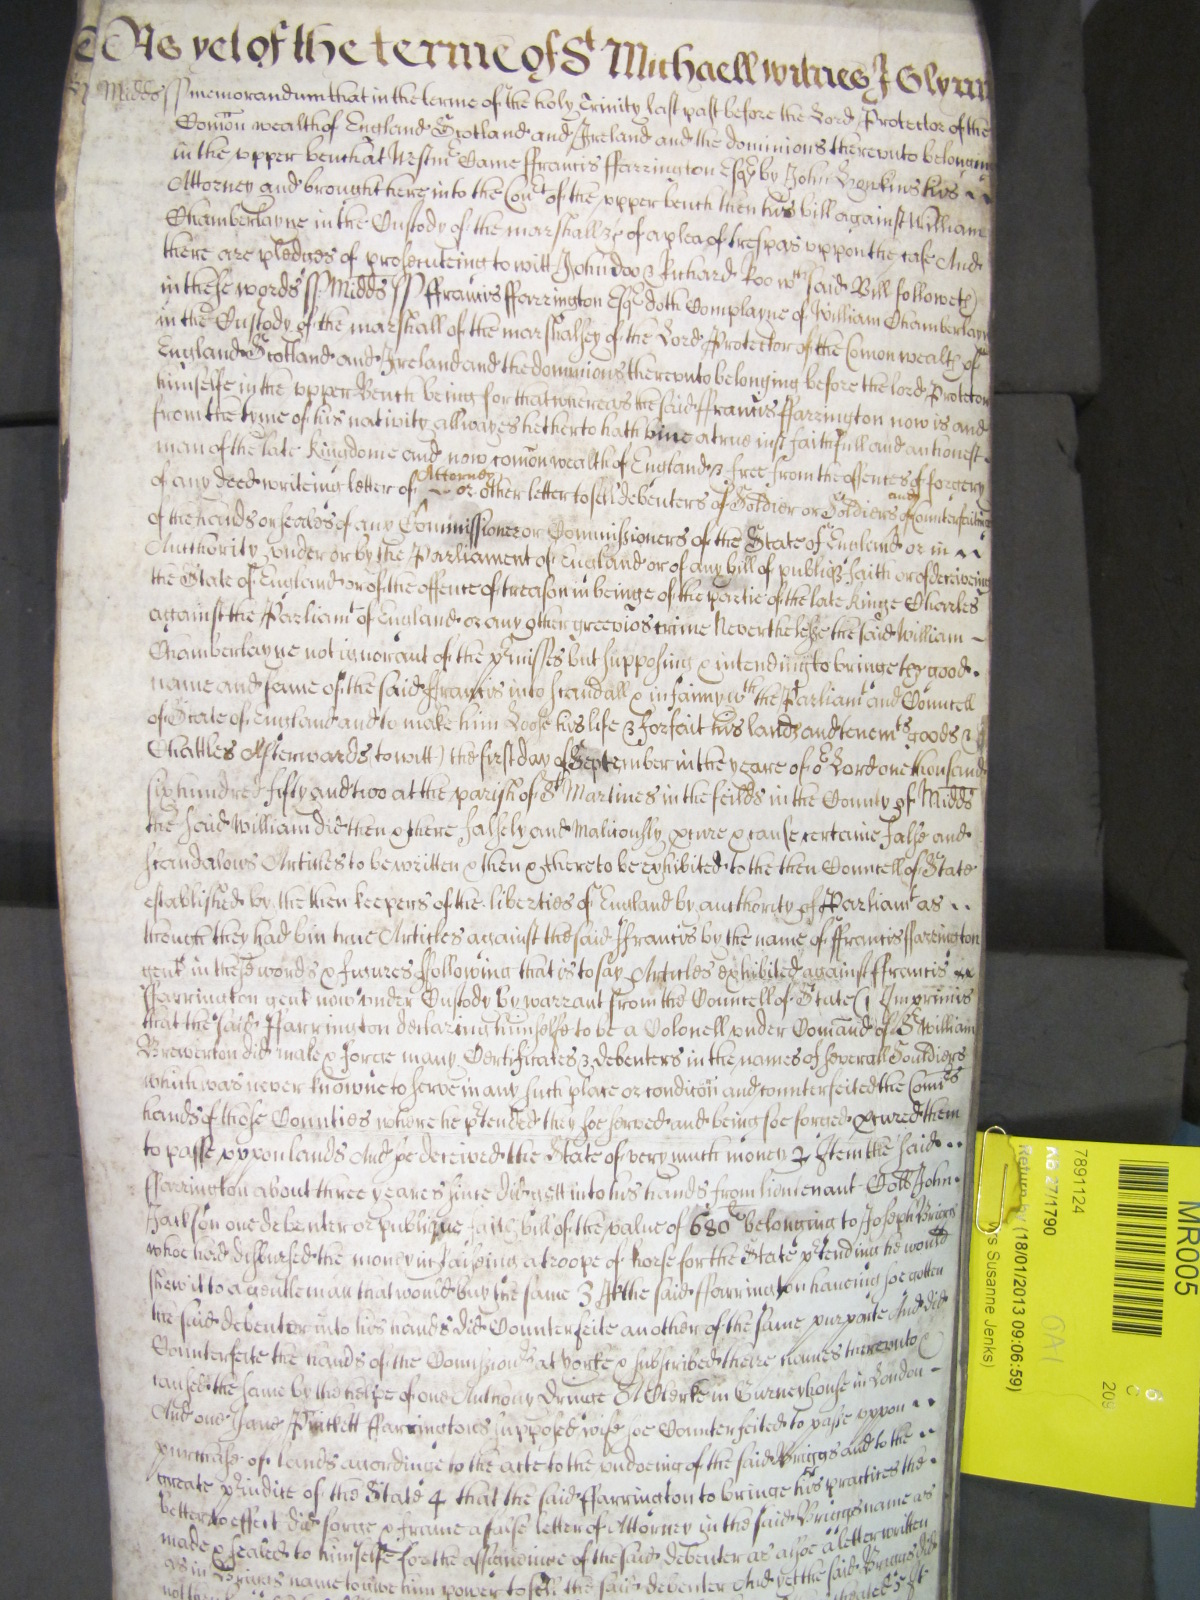 As yet of the terme of St Michaell witnes J Glynn
Midds ss memorandum that in the terme of the holy Trinity last past before the Lord Protector of the
Comon wealth of England Scotland and Ireland and the dominions thereunto belonging
in the upper bench at Westmr Came ffrancis ffarrington Esqr by John Hopkins his
Attorney and brought here into the Court of the upper bench then his bill against William
Chamberlayne in the Custody of the marshall &c of a plea of trespas uppon the case And
there are pledges of prosecuteing to witt John doo & Richard Roo wch said Bill followeth
in these words ss Midds ss ffrancis ffarrington Esqr doth Complayne of William Chamberlayn
in the Custody of the marshall of the marshalsey of the Lord Protector of the Comon wealth of
England Scotland and Ireland and the dominions thereunto belonging before the lord Protector
himselfe in the upper Bench being for that whereas the said ffrancis ffarrington now is and
from the tyme of his nativity allwayes hetherto hath bine a true just faithfull and an honest
man of the late Kingdome and now comon wealth of England & free from the offences of forgery
of any deed writeing letter of Attorney or other letter to sell debenters of Soldier or Soldiers and of Counterfeiting
of the hands or seales of any Commissioner or Commissioners of the State of England or in
Authority under or by the Parliament of England or of any bill of publique faith or of deceiveing
the State of England or of the offence of treason in beinge of the partie of the late Kinge Charles
against the Parliamt of England or any other greevios crime Neverthelesse the said William
Chamberlayne not ignorant of the pmisses but supposing & intending to bringe the good
name and fame of the said ffrancis into scandall & infamy wth the Parliamt and Councell
of State of England and to make him Loose his life & forfait his lands and tenemts goods &
Chattles Afterwards (to witt) the first day of September in the yeare of or Lord one thousand
six hundred fifty and two at the parish of St Martines in the feilds in the County of Midds
the said William did then & there falsely and Maliciously pcure & cause certaine false and
scandalows Articles to be written & then & there to be exhibited to the then Councell of State
established by the then keepers of the liberties of England by authority of Parliamt as
though they had bin true Articles against the said ffrancis by the name of ffrancis ffarrington
gent in these words & figures following that is to say Articles exhibited against ffrancis
ffarrington gent now under Custody by warrant from the Councell of State (1 Imprimis
that the said ffarrington declaring himselfe to be a Colonell under Comand of Sr William
Brewerton did make & forge many Certificates & debenters in the names of severall Souldiers
which was never knowne to serve in any such place or condicion and counterfeited the Comrs
hands of those Counties where he ptended they soe served and being soe forged pcured them
to passe uppon lands And soe deceived the State of very much money 2 Item the said
ffarrington about three yeares since did gett into his hands from lieutenant Coll John
Jackson one debenter or publique faith bill of the value of 680 belonging to Joseph Briggs
whoe had disbursed the money in raiseing a troope of horse for the State ptending he would
shew it to a gentleman that would buy the same 3 It the said ffarrington haveing soe gotten
the said debenter into his hands did Counterfeite another of the same purporte And did
Counterfeite the hands of the Comissionrs at Yorke & subscribed theire names thereunto
caused the same by the helpe of one Anthony a Clerke in Gurney house in London
And one Jane ffarringtons supposed wife soe Counterfeited to passe uppon
purchase of lands accordinge to the acte to the undoeing of the said Briggs and to the
greate pjudice of the State 4 that the said ffarrington to bringe his practices the
better to effect did forge & frame a false letter of Attorney in the said Briggs name as
made & sealed to himselfe for the assigneinge of the said debenter as alsoe a letter written
as in Briggs name to give him power to sell the said debenter And yet the said Briggs did
MR005
7891124
KB 27/1790
Return by (18/01/2013 09:06:59)
s Susanne Jenks)